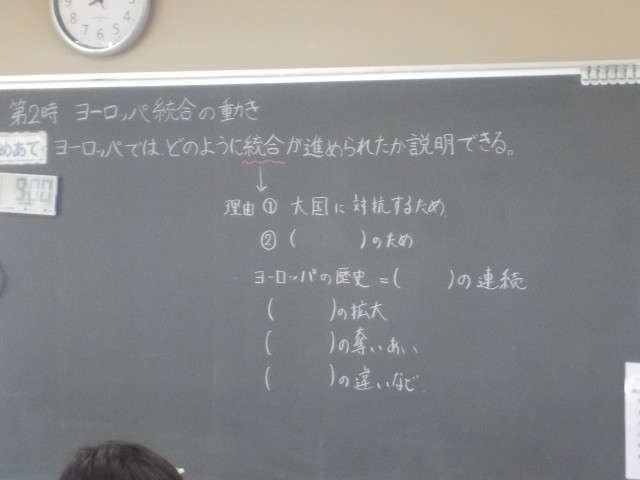 第2時 ヨーロッパ統合の動き
めあて ヨーロッパでは、どのように統合が進められたか説明できる。
9:00
理由 ① 大国に対抗するため
② ( )のため
ヨーロッパの歴史 = ( )の連続
( )の拡大
( )の奪いあい
( )の違いなど